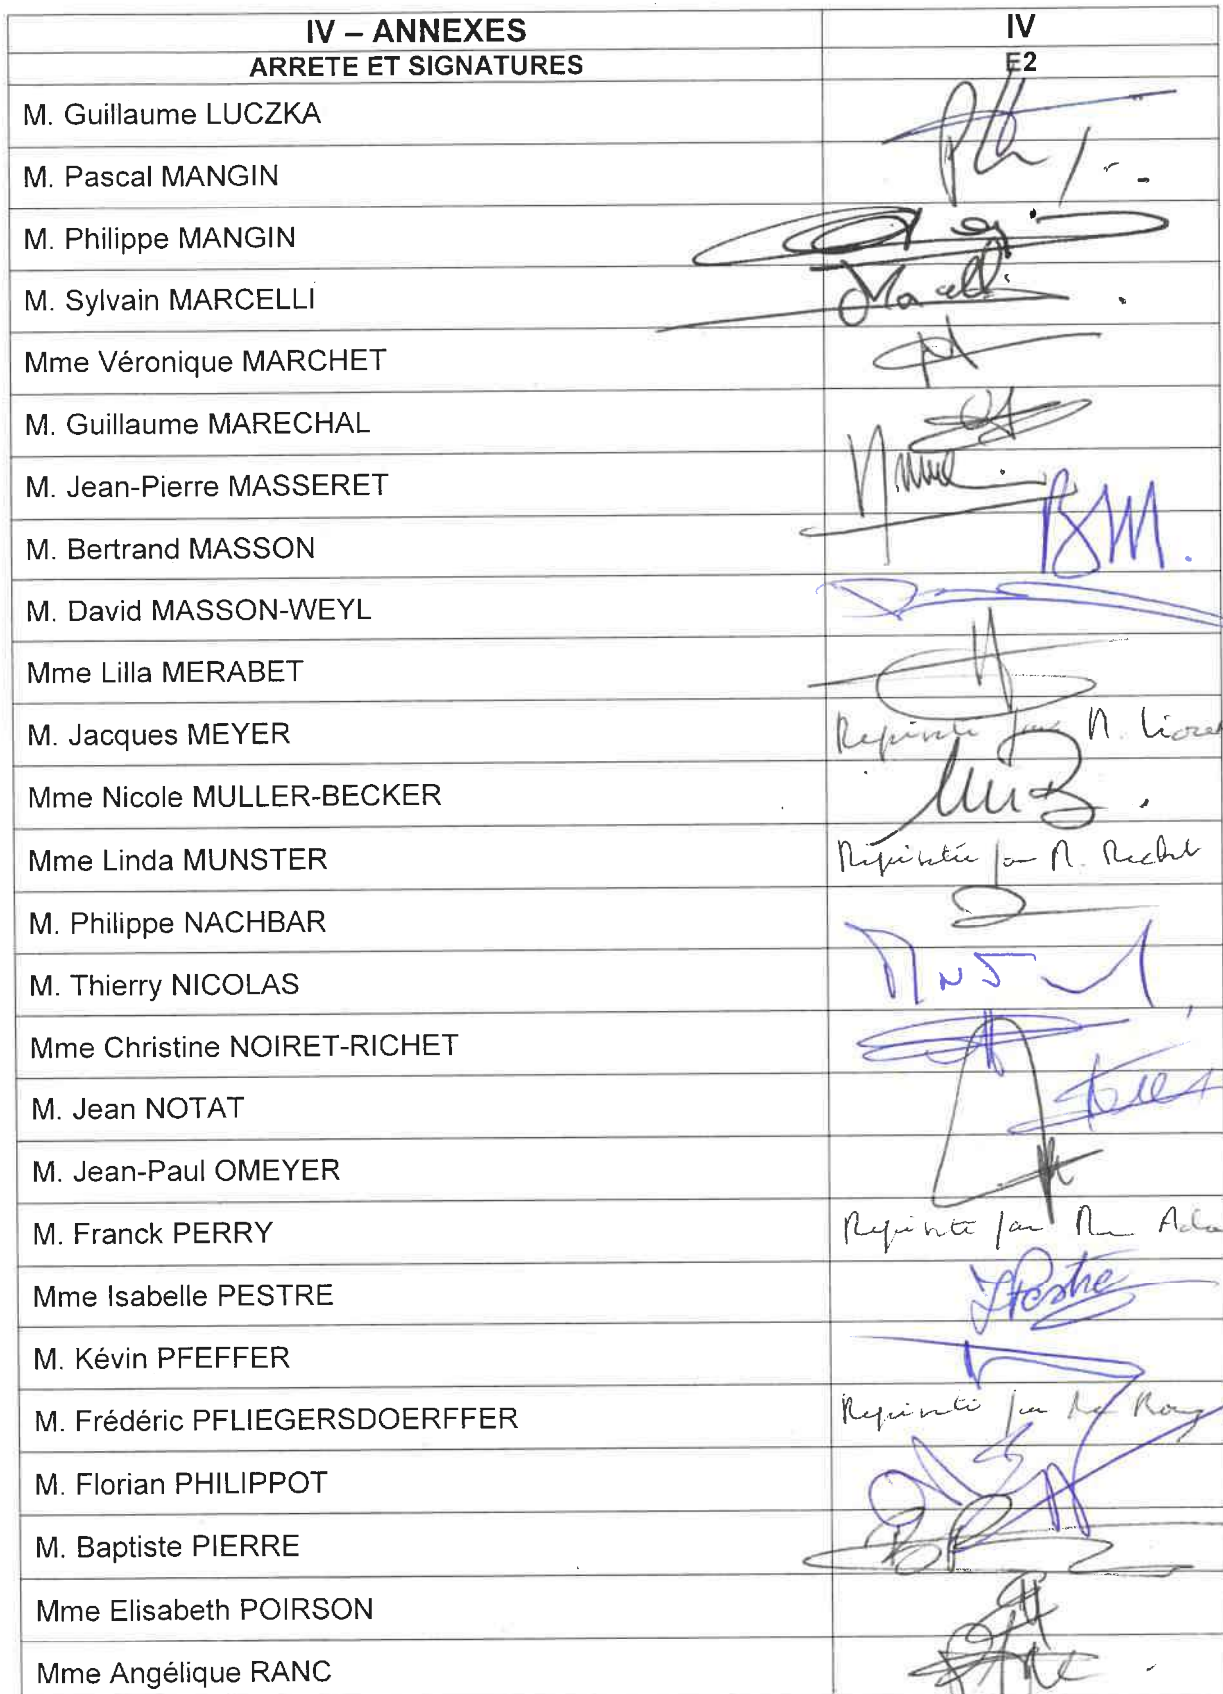 IV – ANNEXES IV
ARRETE ET SIGNATURES E2
M. Guillaume LUCZKA
M. Pascal MANGIN
M. Philippe MANGIN
M. Sylvain MARCELLI Marcelli
Mme Véronique MARCHET
M. Guillaume MARECHAL
M. Jean-Pierre MASSERET
M. Bertrand MASSON BM.
M. David MASSON-WEYL
Mme Lilla MERABET
M. Jacques MEYER par M.
Mme Nicole MULLER-BECKER
Mme Linda MUNSTER par M.
M. Philippe NACHBAR
M. Thierry NICOLAS
Mme Christine NOIRET-RICHET
M. Jean NOTAT
M. Jean-Paul OMEYER
M. Franck PERRY par
Mme Isabelle PESTRE IPestre
M. Kévin PFEFFER
M. Frédéric PFLIEGERSDOERFFER par
M. Florian PHILIPPOT
M. Baptiste PIERRE
Mme Elisabeth POIRSON
Mme Angélique RANC